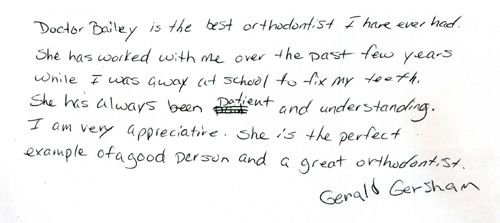 Doctor Bailey is the best orthodontist I have ever had.
She has worked with me over the past few years
while I was away at school to fix my teeth.
She has always been patient and understanding.
I am very appreciative. She is the perfect
example of a good person and a great orthodontist.
Gerald Gersham